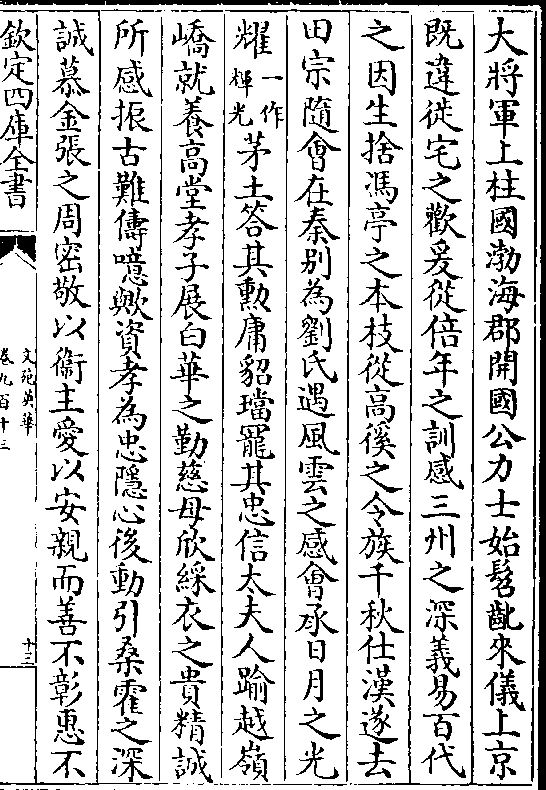 大將軍上柱國渤海郡開國公力士始髫齔來儀上京
既違徙宅之歡爰從倍年之訓感三州之深義易百代
之因生捨馮亭之本枝從高徯之令族千秋仕漢遂去
田宗隨會在秦别為劉氏遇風雲之感會承日月之光
耀一作輝光茅土答其勲庸貂璫寵其忠信太夫人踰越嶺
嶠就養高堂孝子展白華之勤慈母欣綵衣之貴精誠
所感振古難儔噫歟資孝為忠隱心後動引桑霍之深
誠慕金張之周密敬以衞主愛以安親而善不彰惠不
欽定四庫全書
文苑英華
卷九百十三
十三